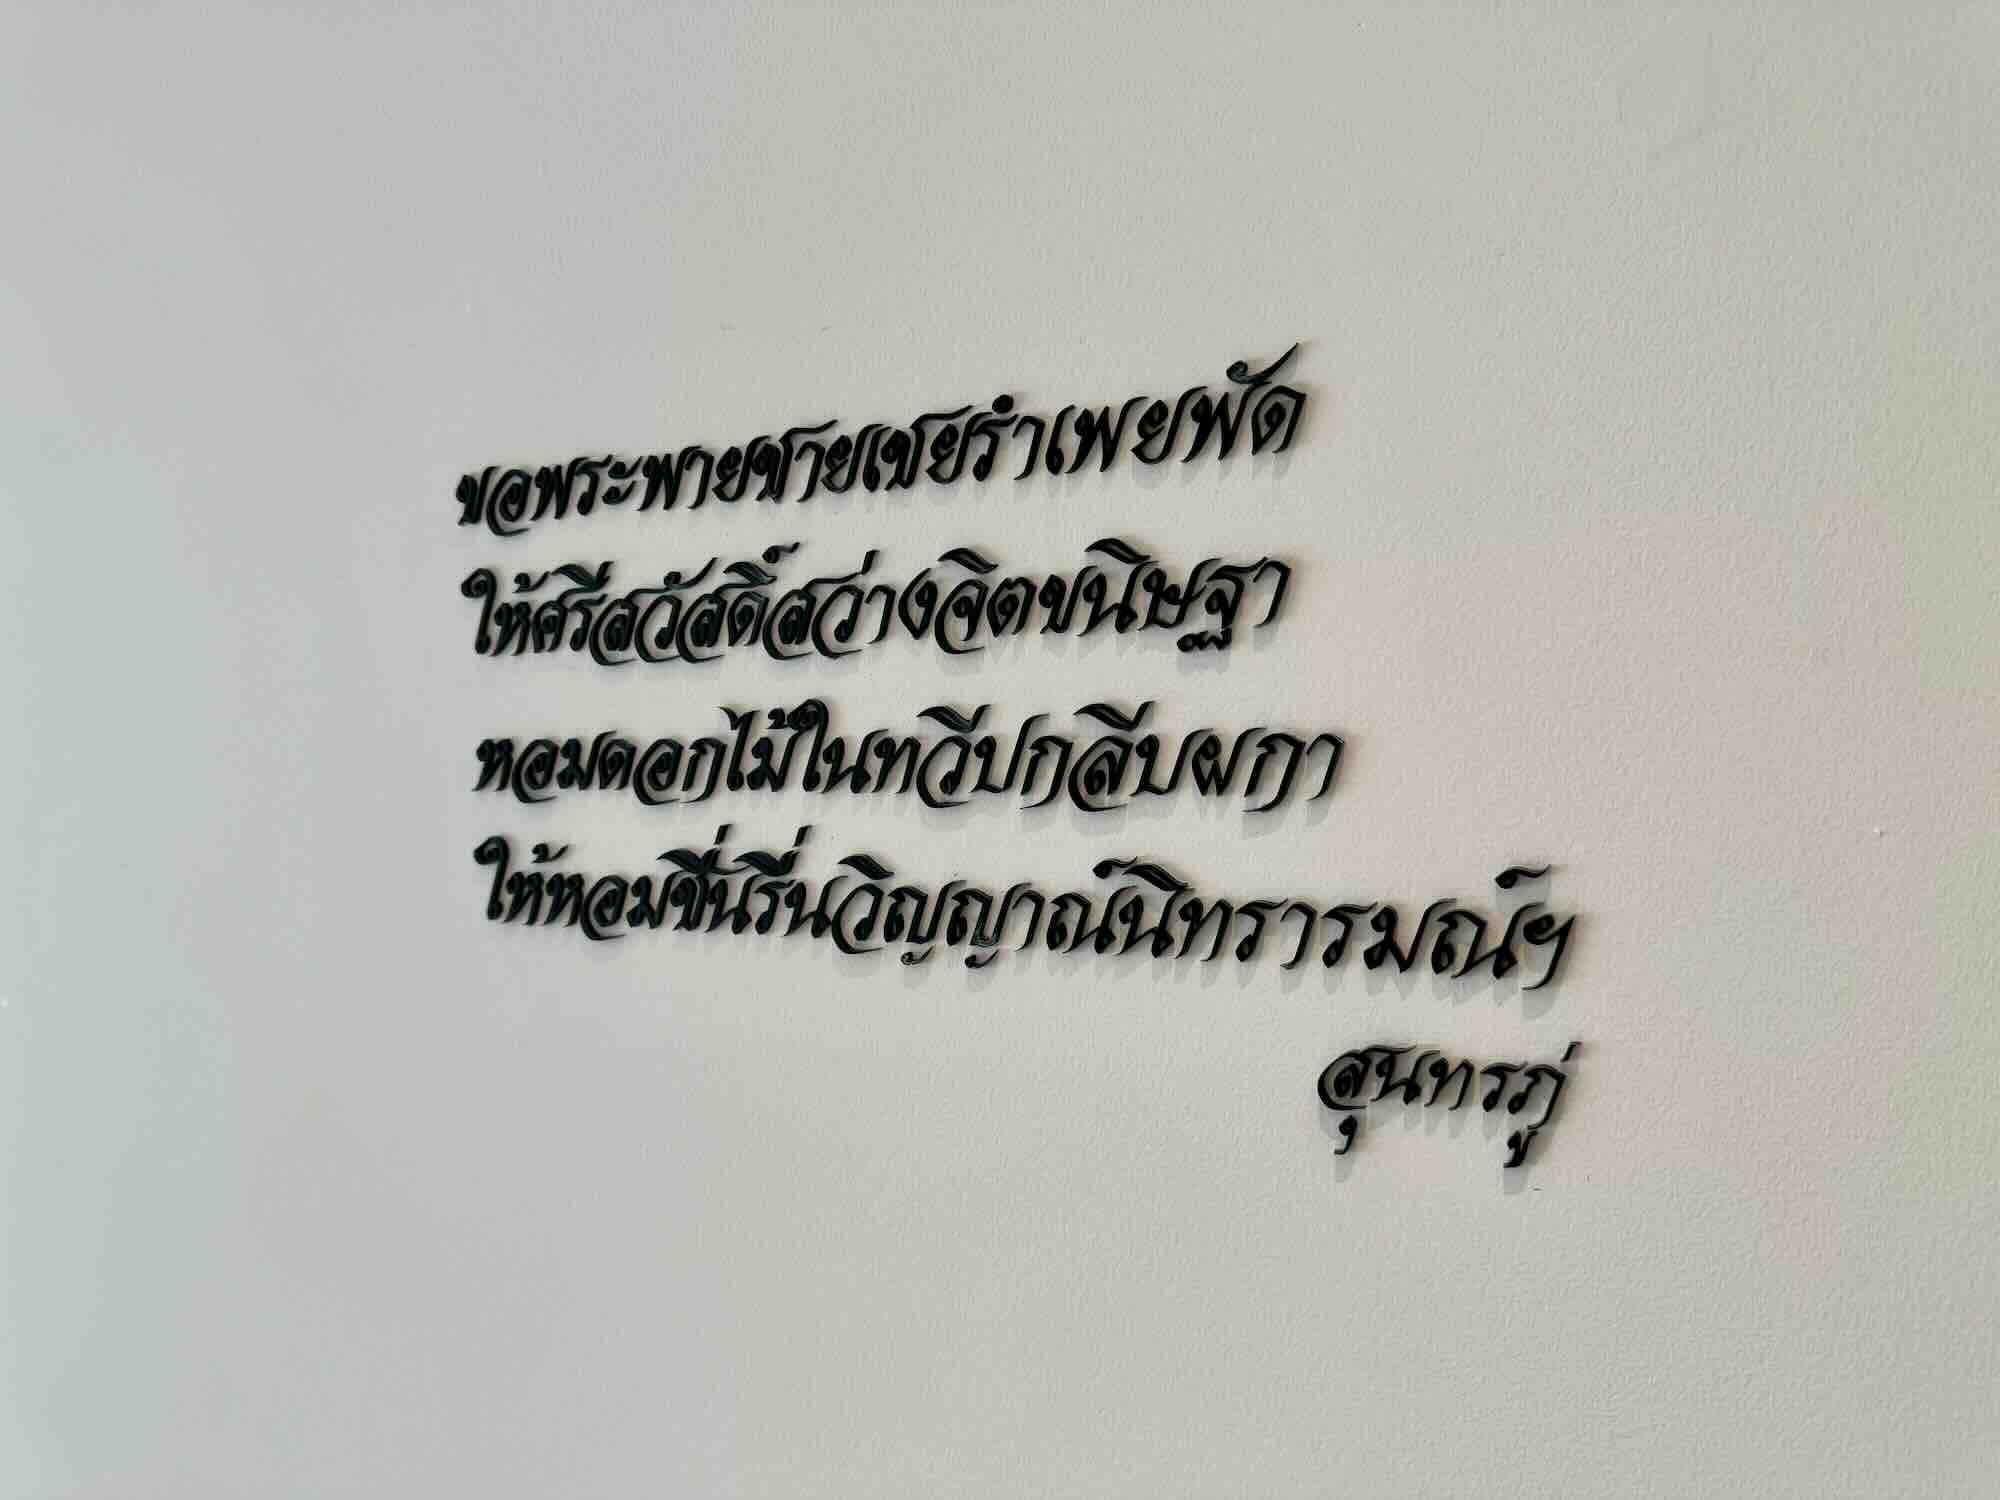 ขอพระพายชายเชยรำเพยพัด
ให้ศรีสวัสดิ์สว่างจิตขนิษฐา
หอมดอกไม้ในทวีปกลีบผกา
ให้หอมชื่นรื่นวิญญาณ์นิทรารมณ์ฯ
สุนทรภู่